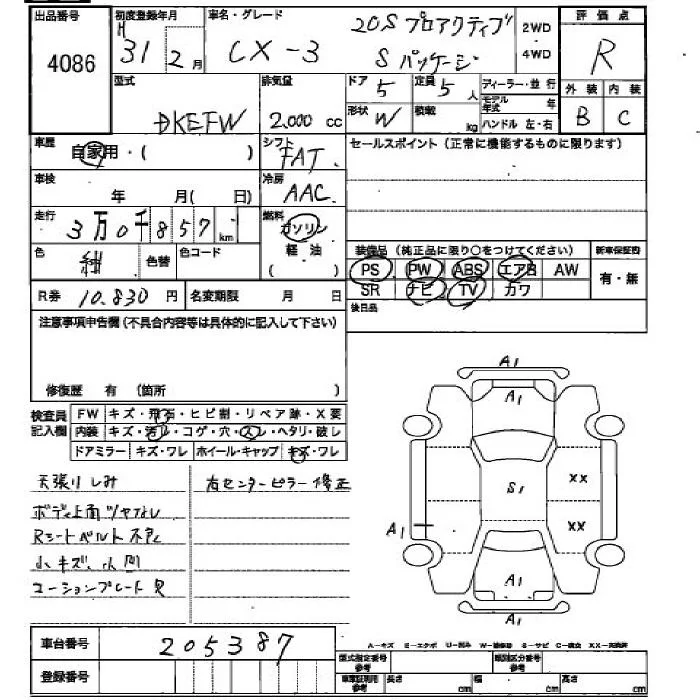 出品番号 初度登録年月 車名・グレード 評価点
4086 H 31 2月 CX-3 20S プロアクティブ S パッケージ 2WD ・ 4WD R
型式 排気量 ドア 5 定員 5人 ディーラー・並行 外装 内装
DKEFW 2.000 cc 形状 W 積載 kg モデル年式 年 ハンドル 左・右 B C
車歴 自家用・( ) シフト FAT セールスポイント (正常に機能するものに限ります)
車検 年 月( 日) 冷房 AAC
走行 3万0千857km 燃料 ガソリン 軽油 ( )
色 紺 色替 色コード 装備品 (純正品に限り○をつけてください) 新車保証書
PS PW ABS エアB AW 有・無
R券 10.830円 名変期限 月 日 SR ナビ TV カワ
注意事項申告欄(不具合内容等は具体的に記入して下さい) 後日品
修復歴 有 (箇所 )
検査員記入欄 FW キズ・飛石・ヒビ割・リペア跡・X要
内装 キズ・汚れ・コゲ・穴・スレ・ヘタリ・破レ
ドアミラー キズ・ワレ ホイール・キャップ キズ・ワレ
天張りしみ 右センターピラー修正
ボディ上面ツヤなし
Rシートベルト不良
小キズ、小凹
コーションプレート
A1
A1
XX
S1
XX
A1
A1
A1
車台番号 205387
A-キズ
登録番号 型式指定番号 参考 類別区分番号 参考
長さ cm 幅 cm 高さ cm